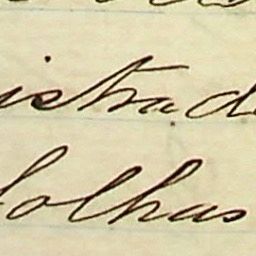 istrad
folhas